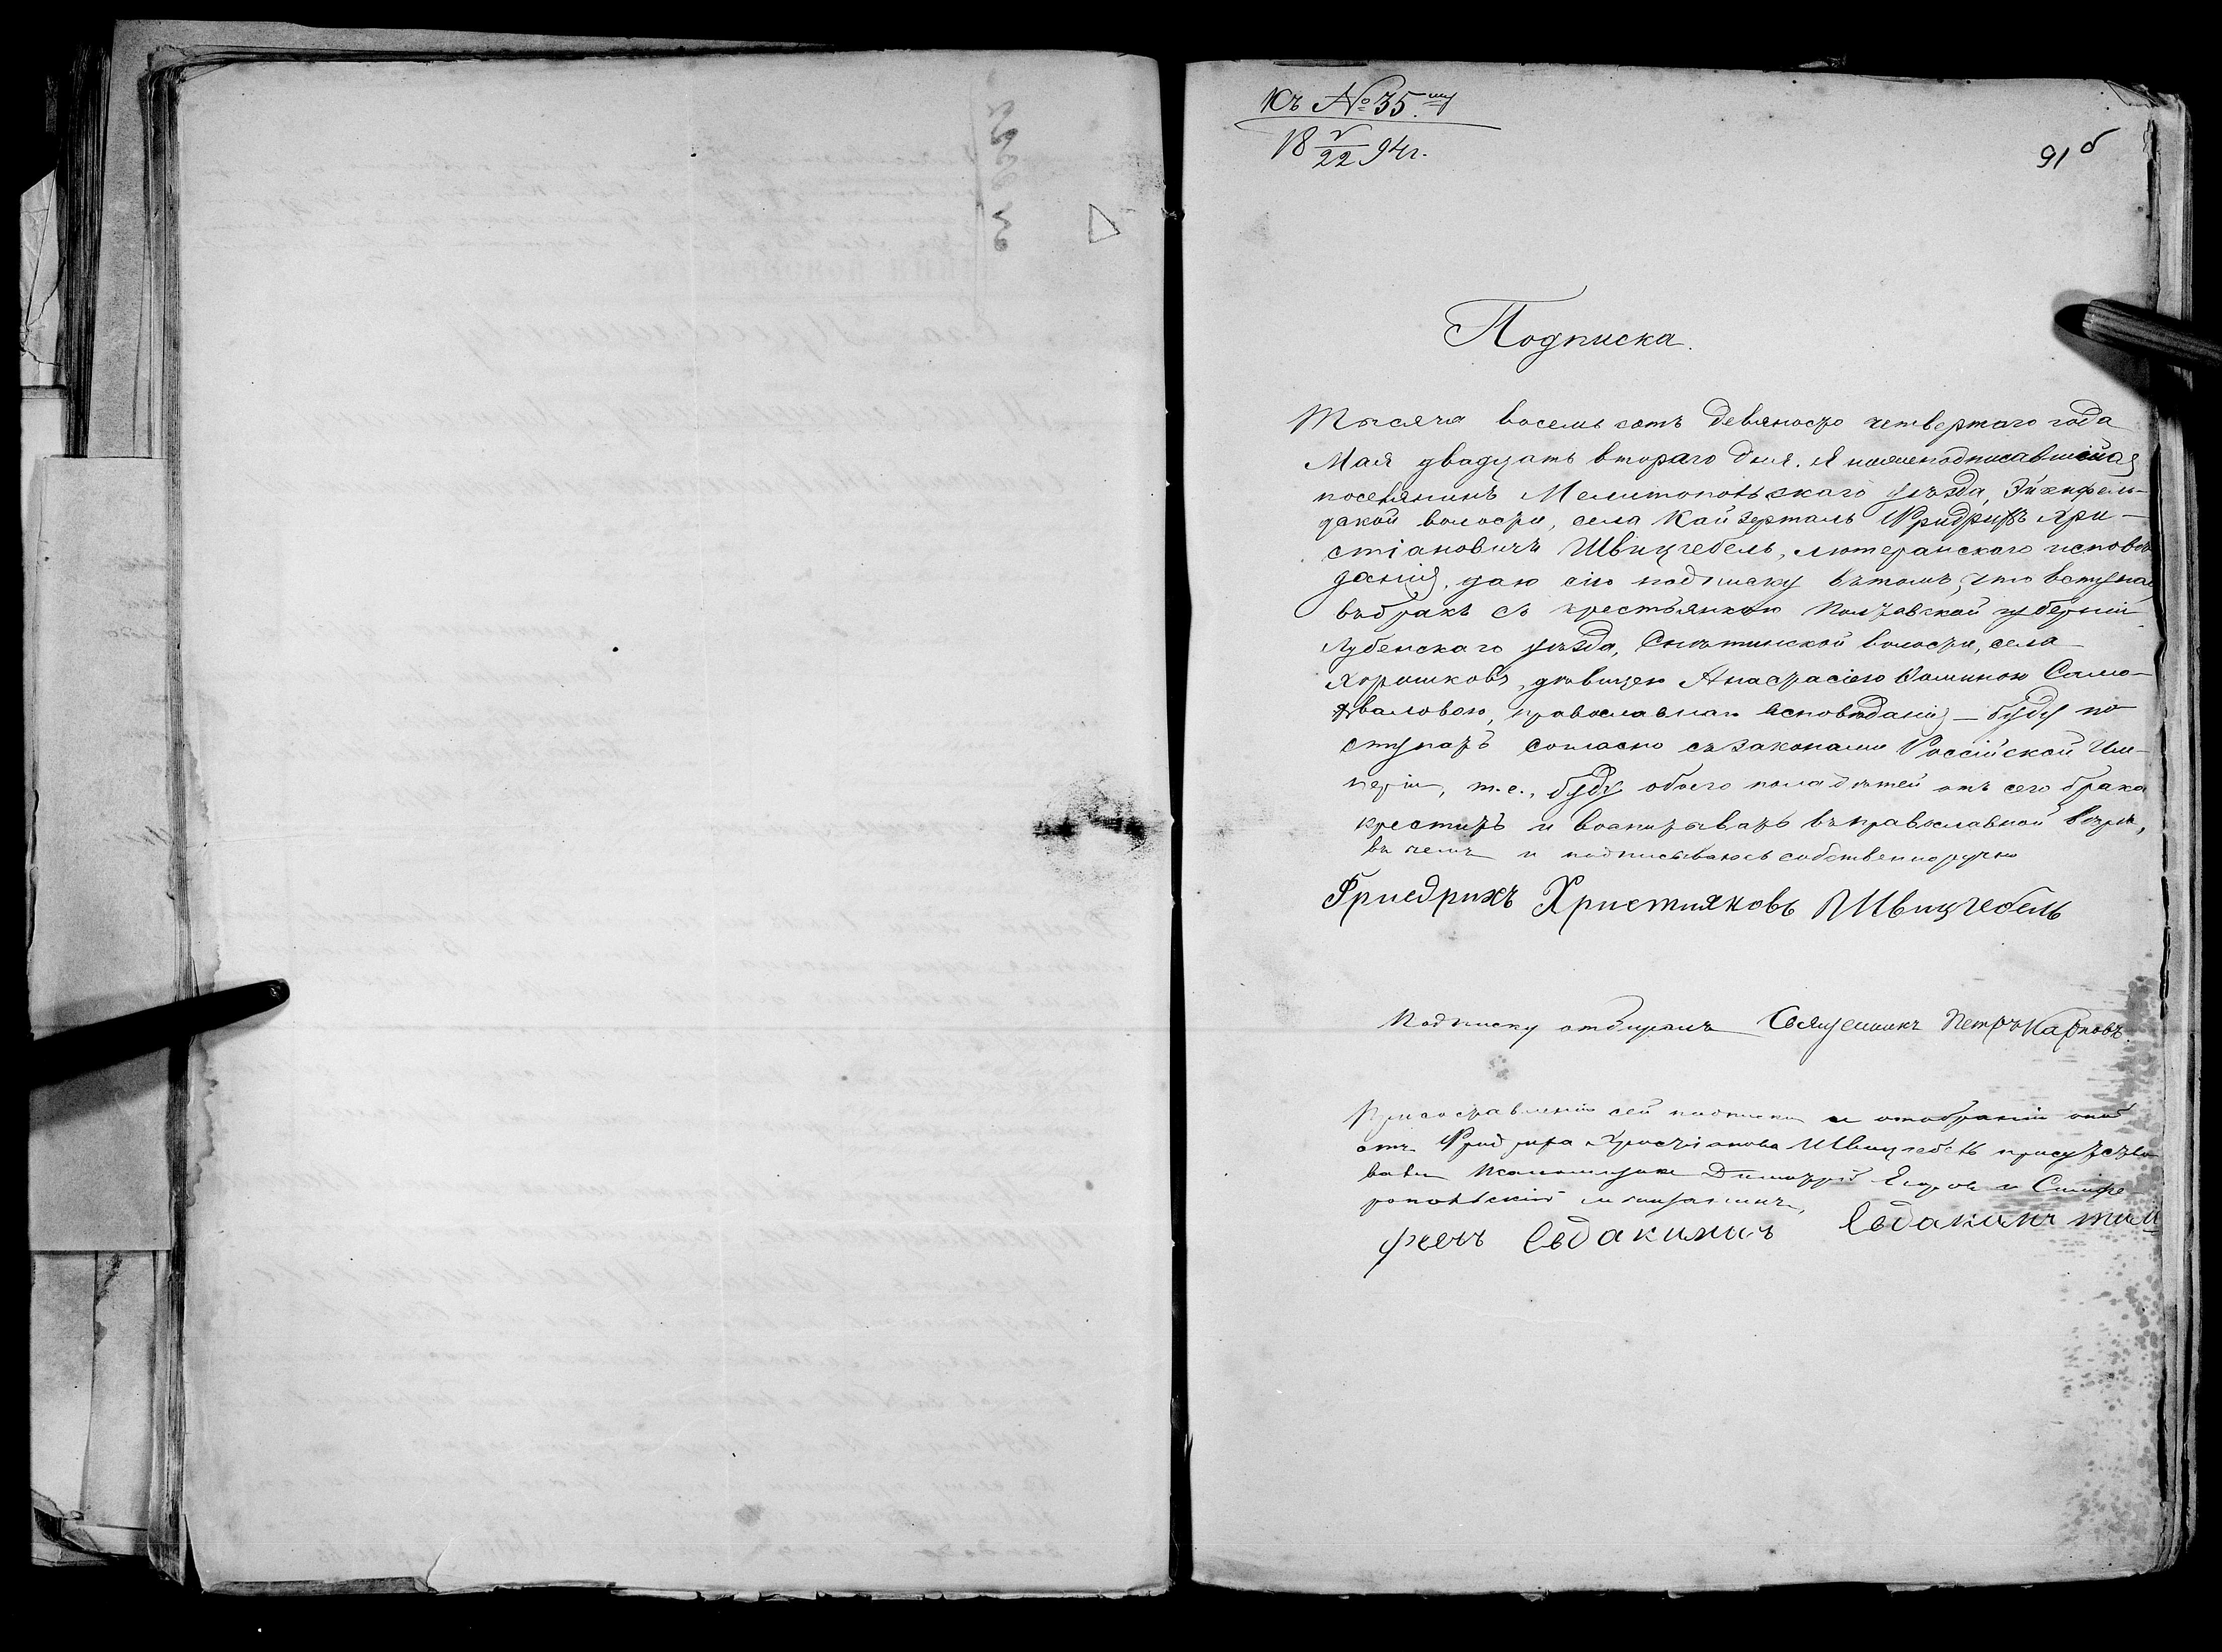 Къ № 35.му
18 V/22 94 г.
91 б
Подписка.
Тысяча восемь сотъ девяносто четвертаго года
Мая двадцать втораго дня. Я нижеподписавшійся
поселянинъ Мелитопольскаго уѣзда, Эйхнфель-
дской волости, села Кайзерталь Фридрихъ Хри-
стіановичъ Швицгебель, лютеранскаго исповѣ-
данія, даю сію подписку въ томъ, что вступая
въ бракъ съ крестьянкою Полтавской губерніи
Лубенскаго уѣзда, Снѣтинской волости, села
Хорошковъ, дѣвицею Анастасіею Фоминою Само-
хваловою, православнаго исповѣданія — буду по
ступать согласно съ законами Россійской Им-
періи, т.е., буду обоего пола дѣтей отъ сего брака
крестить и воспитывать въ православной вѣрѣ,
въ чемъ и подписываюсь собственноручно
Фриедрихъ Християновъ Швицгебель
Подписку отбиралъ Священникъ Петръ Карповъ.
При составленіи сей подписки и отобраніи оной
отъ Фридриха Христіанова Швицгебель присутство
вали Димитрій и Симфе
ропольскій мѣщанинъ,
Евдакимъ
Евдакимъ